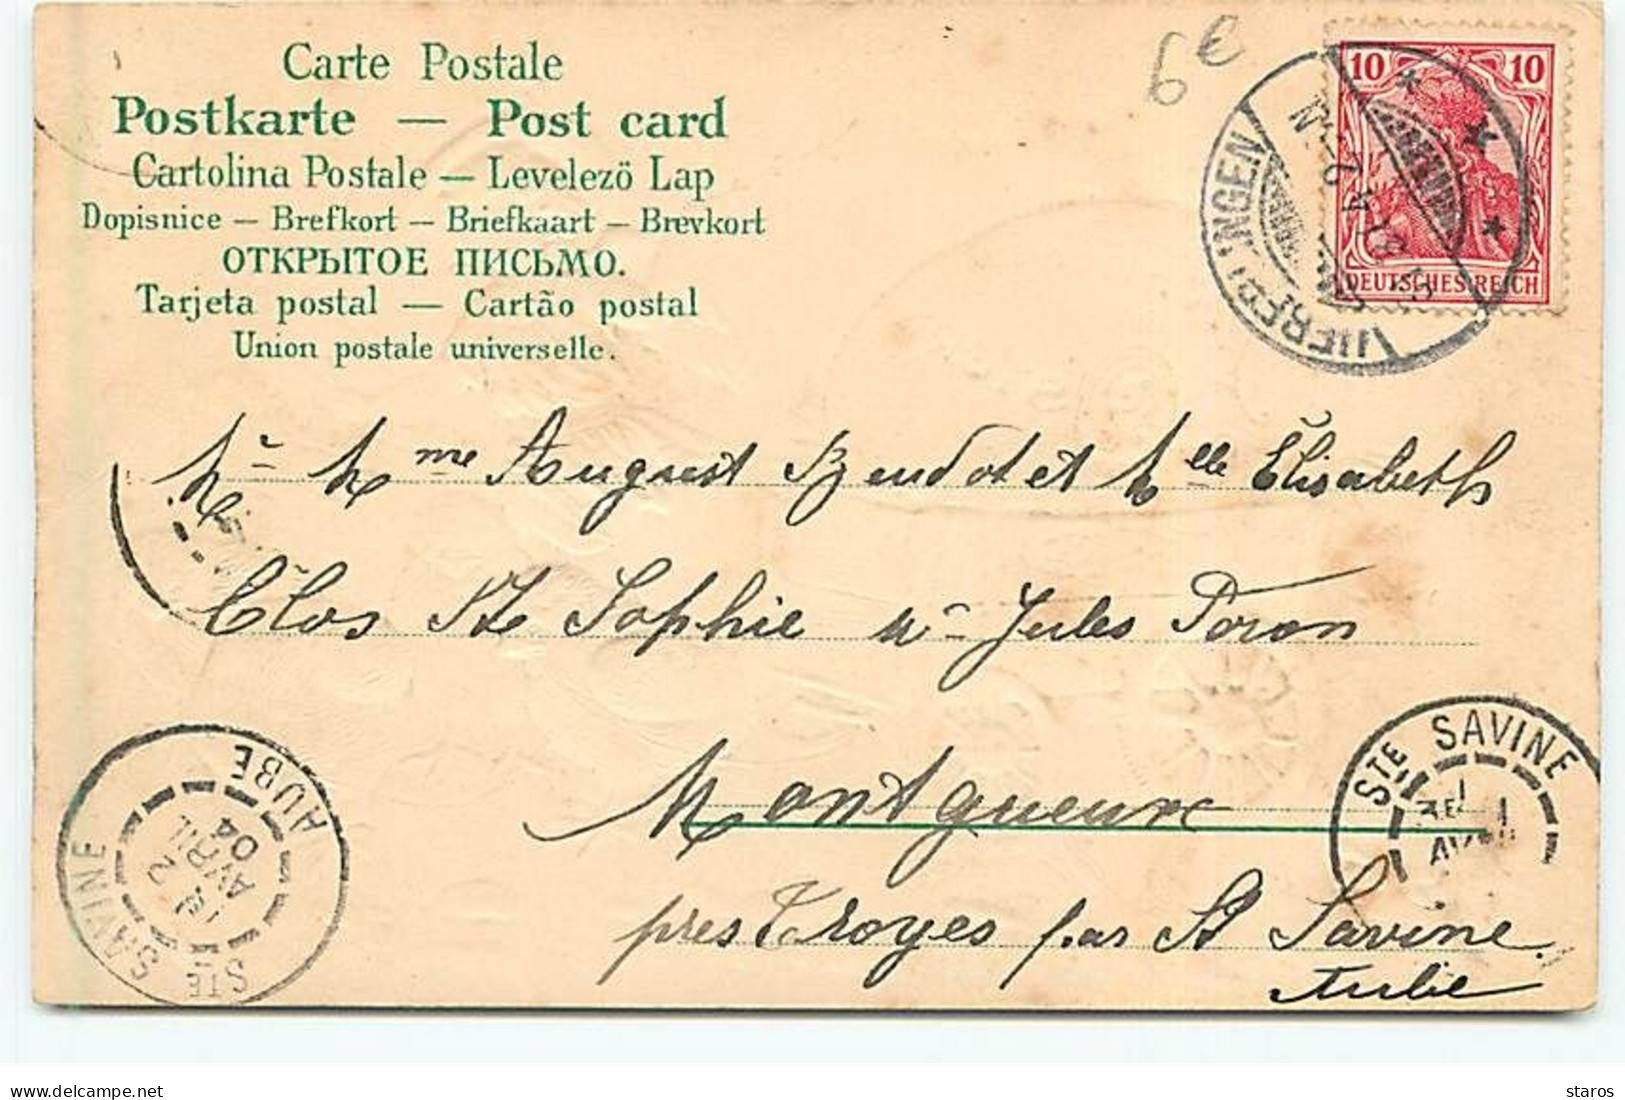 Carte Postale
Postkarte — Post card
Cartolina Postale — Levelezö Lap
Dopisnice — Brefkort — Briefkaart — Brevkort
ОТКРЫТОЕ ПИСЬМО.
Tarjeta postal — Cartão postal
Union postale universelle.
6€
10 10
DEUTSCHES REICH
Mr Mme August et Mlle Élisabeth
Clos Ste Sophie Mr Jules Poron
Montgueux
pres Troyes par St Savine
Aube
STE SAVINE
AUBE
2
AVRIL
04
STE SAVINE
staros